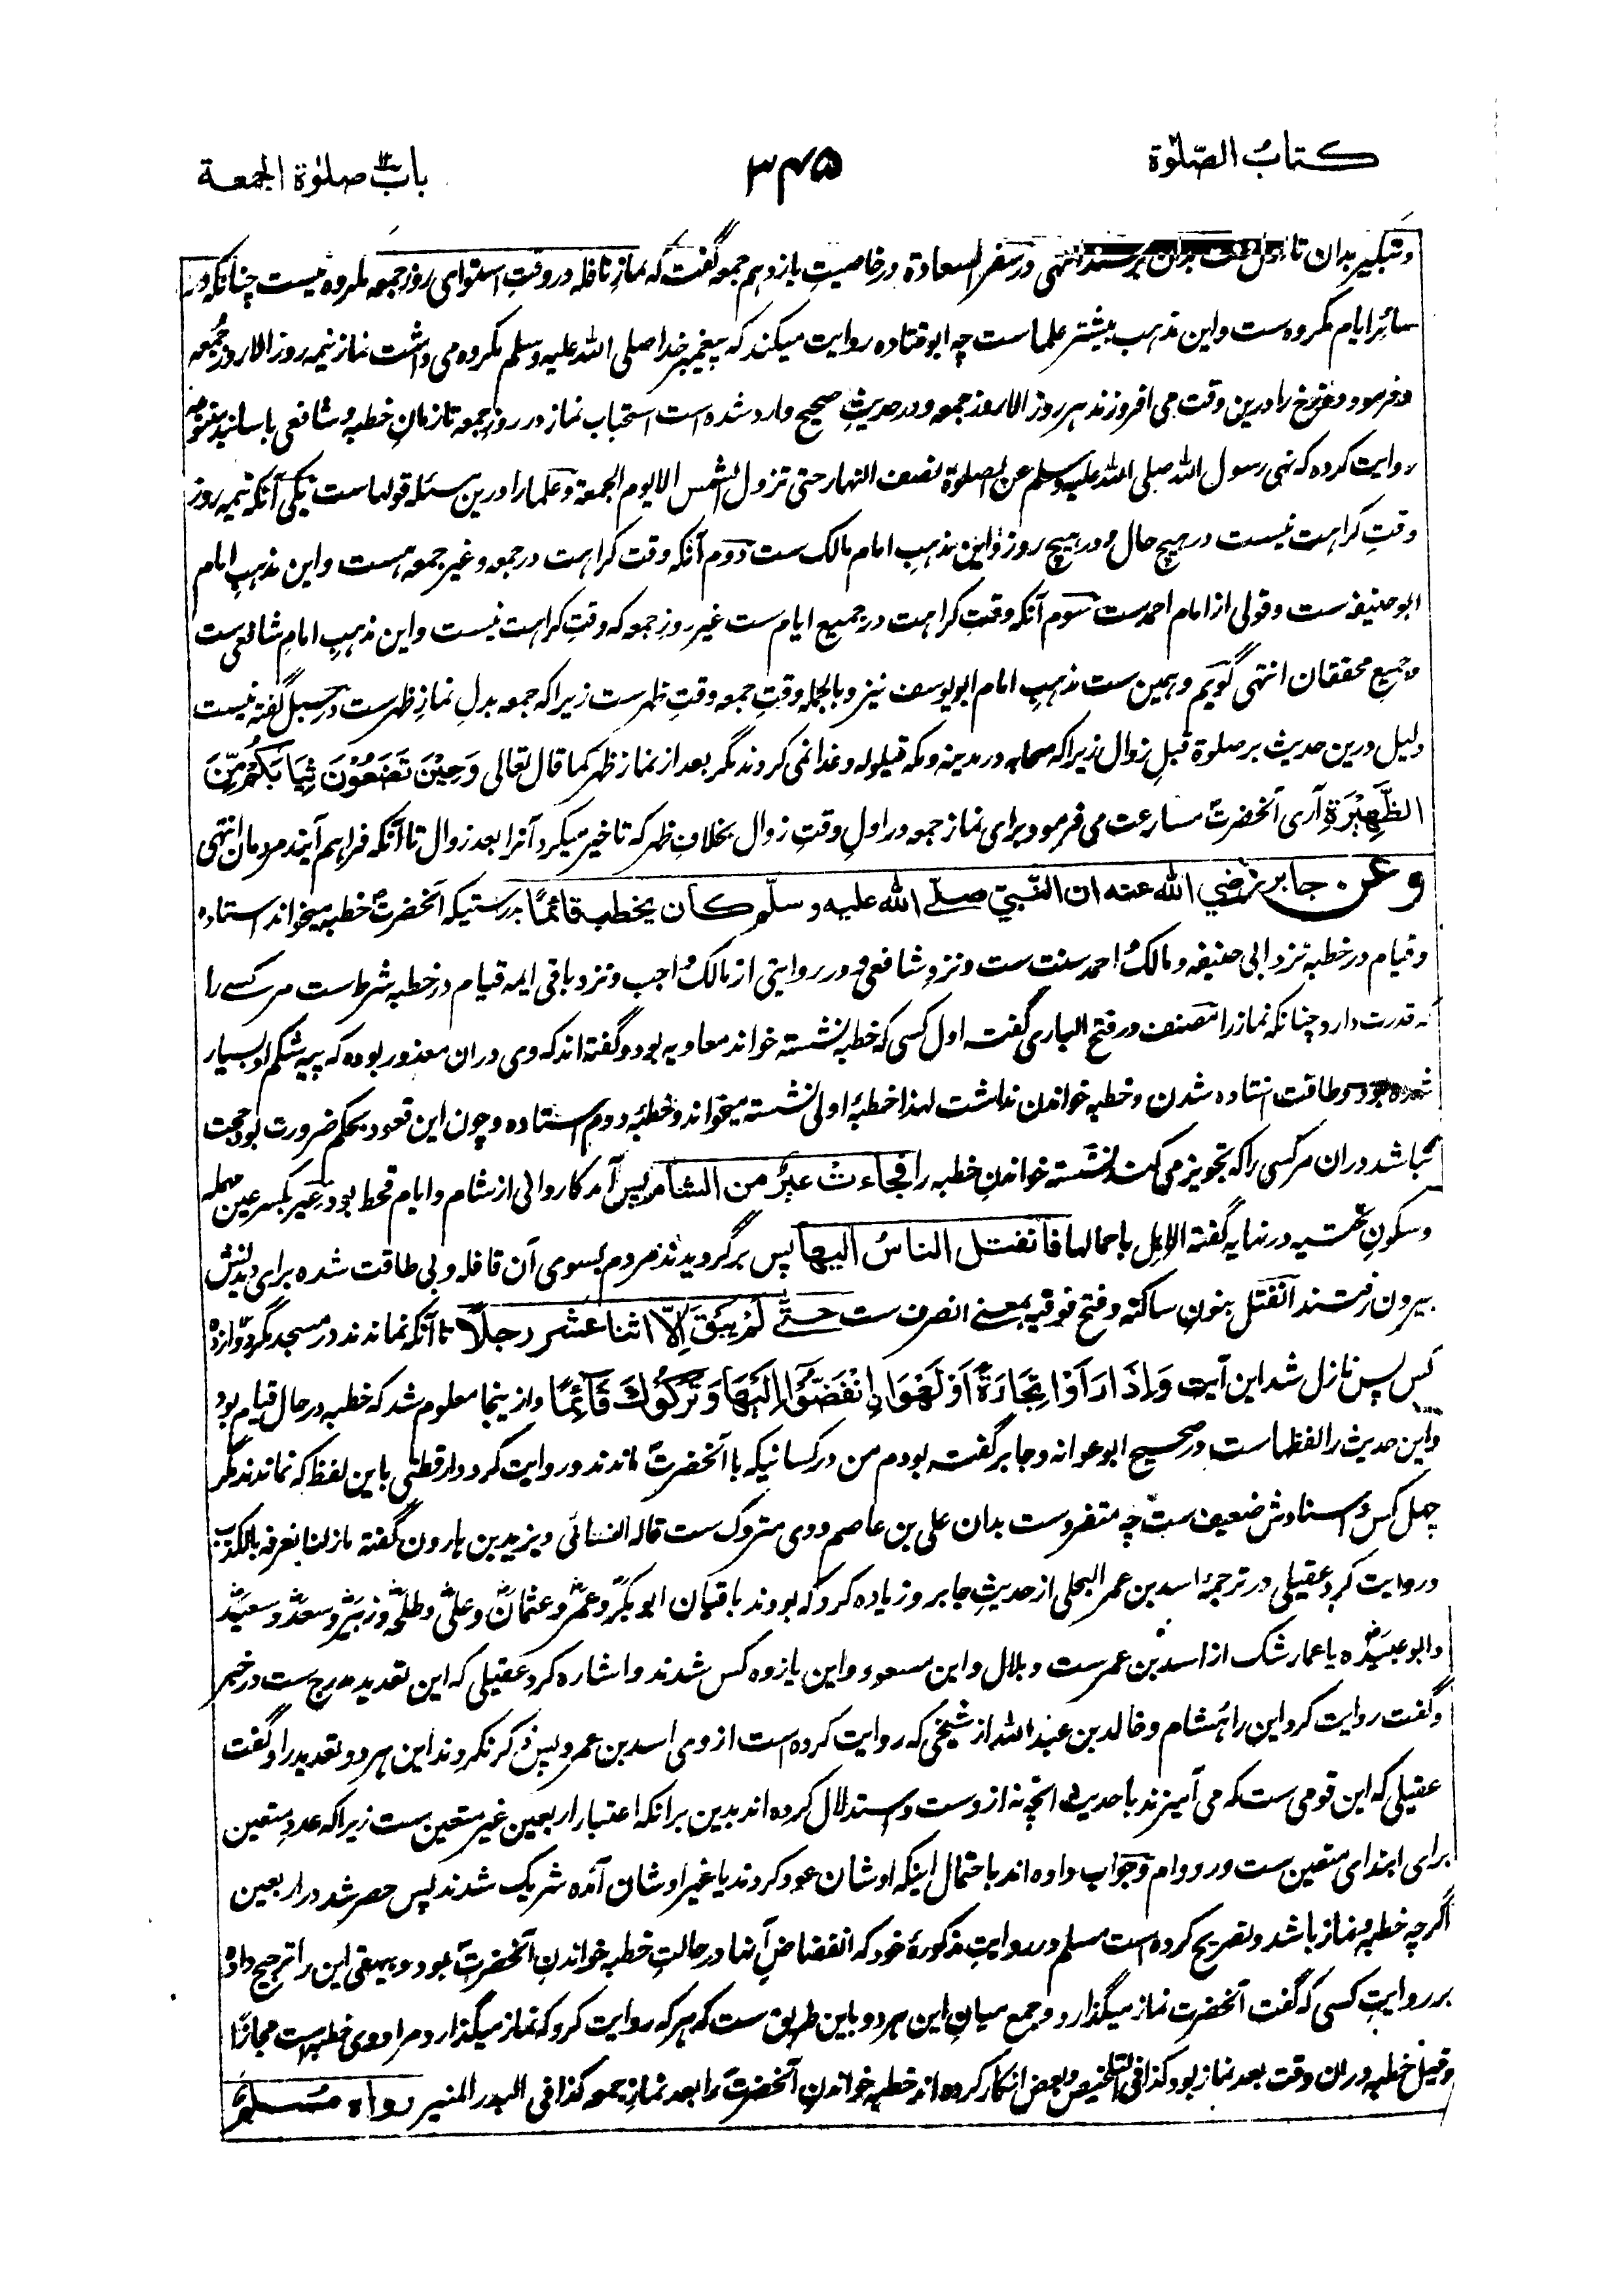 كتاب الصلوٰة
۳۴۵
باب صلوٰة الجمعة
وتبکیر بدان تا انتهی در سفر السعادة در خاصیت یازدهم جمعه گفت که نماز نافله در وقت استوای روز جمعه مکروه نیست چنانکه در
سائر ایام مکروه ست واین مذهب بیشتر علماست چه ابوقتاده روایت میکند که پیغمبر خدا صلی الله علیه وسلم مکروه می داشت نماز نیمه روز الا روز جمعه
وفرمود دوزخ را درین وقت می افروزند هر روز الا روز جمعه ودر حدیث صحیح وارد شده است استحباب نماز در روز جمعه تا زمان خطبه وشافعی باسانید
روایت کرده که نهی رسول الله صلی الله علیه وسلم عن الصلوة نصف النهار حتی تزول الشمس الا یوم الجمعة وعلما را درین مسئله قولهاست یکی آنکه نیمه روز
وقت کراهت نیست در هیچ حال ودر هیچ روز واین مذهب امام مالک ست دوم آنکه وقت کراهت در جمعه وغیر جمعه هست واین مذهب امام
ابوحنیفه ست وقولی از امام احمدست سوم آنکه وقت کراهت در جمیع ایام ست غیر روز جمعه که وقت کراهت نیست واین مذهب امام شافعی ست
وجمیع محققان انتهی گویم وهمین ست مذهب امام ابویوسف نیز وبالجمله وقت جمعه وقت ظهرست زیراکه جمعه بدل نماز ظهرست در سبل گفته نیست
دلیل درین حدیث بر صلوة قبل زوال زیراکه صحابه در مدینه ومکه قیلوله وغدا نمی کردند مگر بعد از نماز ظهر کما قال تعالی وَحِیْنَ تَضَعُوْنَ ثِیَابَکُمْ مِّنَ
الظَّهِیْرَةِ آری آنحضرت مسارعت می فرمود برای نماز جمعه در اول وقت زوال بخلاف ظهر که تاخیر میکرد آنرا بعد زوال تا آنکه فراهم آیند مردمان انتهی
وعن جابر رضي الله عنه ان النبي صلى الله عليه وسلم كان يخطب قائما بدرستیکه آنحضرت خطبه میخواند استاده
وقیام در خطبه نزد ابی حنیفه ومالک واحمد سنت ست ونزد شافعی ودر روایتی از مالک واجب ونزد باقی ایمه قیام در خطبه شرط ست مر کسے را
که قدرت دارد چنانکه نماز را مصنف در فتح الباری گفت اول کسی که خطبه نشسته خواند معاویه بود وگفته اند که وی دران معذور بوده که پیه شکم او بسیار
شده بود وطاقت استاده شدن وخطبه خواندن نداشت لهذا خطبۂ اولی نشسته میخواند وخطبۂ دوم استاده وچون این قعود بحکم ضرورت بود حجت
نباشد دران مر کسی را که تجویز می کند نشسته خواندن خطبه را فجاءت عير من الشام پس آمد کاروانی از شام وایام قحط بود عیر بکسر عین مهمله
وسکون تحتیه در نهایه گفته الابل باحمالها فانفتل الناس اليها پس برگردیدند مردم بسوی آن قافله وبی طاقت شده برای دیدنش
بیرون رفتند انفتل بنون ساکنه وفتح فوقیه بمعنی انصرف ست حتى لم يبق إلا اثنا عشر رجلا تا آنکه نماندند در مسجد مگر دوازده
کس پس نازل شد این آیت وَاِذَا رَاَوْا تِجَارَةً اَوْ لَهْوَا ۨ انْفَضُّوْٓا اِلَیْهَا وَتَرَکُوْكَ قَآئِمًا وازینجا معلوم شد که خطبه در حال قیام بود
واین حدیث را لفظهاست در صحیح ابوعوانه وجابر گفته بودم من در کسانیکه با آنحضرت ماندند وروایت کرد دارقطنی باین لفظ که نماندند مگر
چهل کس واسنادش ضعیف ست چه متفردست بدان علی بن عاصم ووی متروک ست قاله النسائی ویزید بن هارون گفته مازلنا نعرفه بالکذب
وروایت کرد عقیلی در ترجمۂ اسد بن عمر البجلی از حدیث جابر وزیاده کرد که بودند باقیان ابوبکر وعمر وعثمان وعلی وطلحه وزبیر وسعد وسعید
وابوعبیده یا عمار شک از اسد بن عمرست وبلال وابن مسعود واین یازده کس شدند واشاره کرد عقیلی که این تعدید مدرج ست در خبر
وگفت روایت کرد این را هشام وخالد بن عبدالله از شیخی که روایت کرده است از وی اسد بن عمر وپس ذکر نکردند این هر دو تعدید را وگفت
عقیلی که این قومی ست که می آمیزند با حدیث انچه نه ازوست واستدلال کرده اند بدین برانکه اعتبار اربعین غیر متعین ست زیراکه عدد متعین
برای ابتدای متعین ست ودر دوام وجواب داده اند باحتمال اینکه اوشان عود کردند یا غیر اوشان آمده شریک شدند پس حصر شد در اربعین
اگرچه خطبه ونماز باشد وتصریح کرده است مسلم در روایت مذکورۂ خود که انفضاض آنها در حالت خطبه خواندن آنحضرت بود وبیهقی این را ترجیح داده
بر روایت کسی که گفت آنحضرت نماز میگذارد وجمع میان این هر دو باین طریق ست که هر که روایت کرد که نماز میگذارد مراد وی خطبه است مجازا
وقیل خطبه دران وقت بعد نماز بود کذا فی التلخیص وبعض انکار کرده اند خطبه خواندن آنحضرت را بعد نماز جمعه کذا فی البدر المنیر رواه مسلم